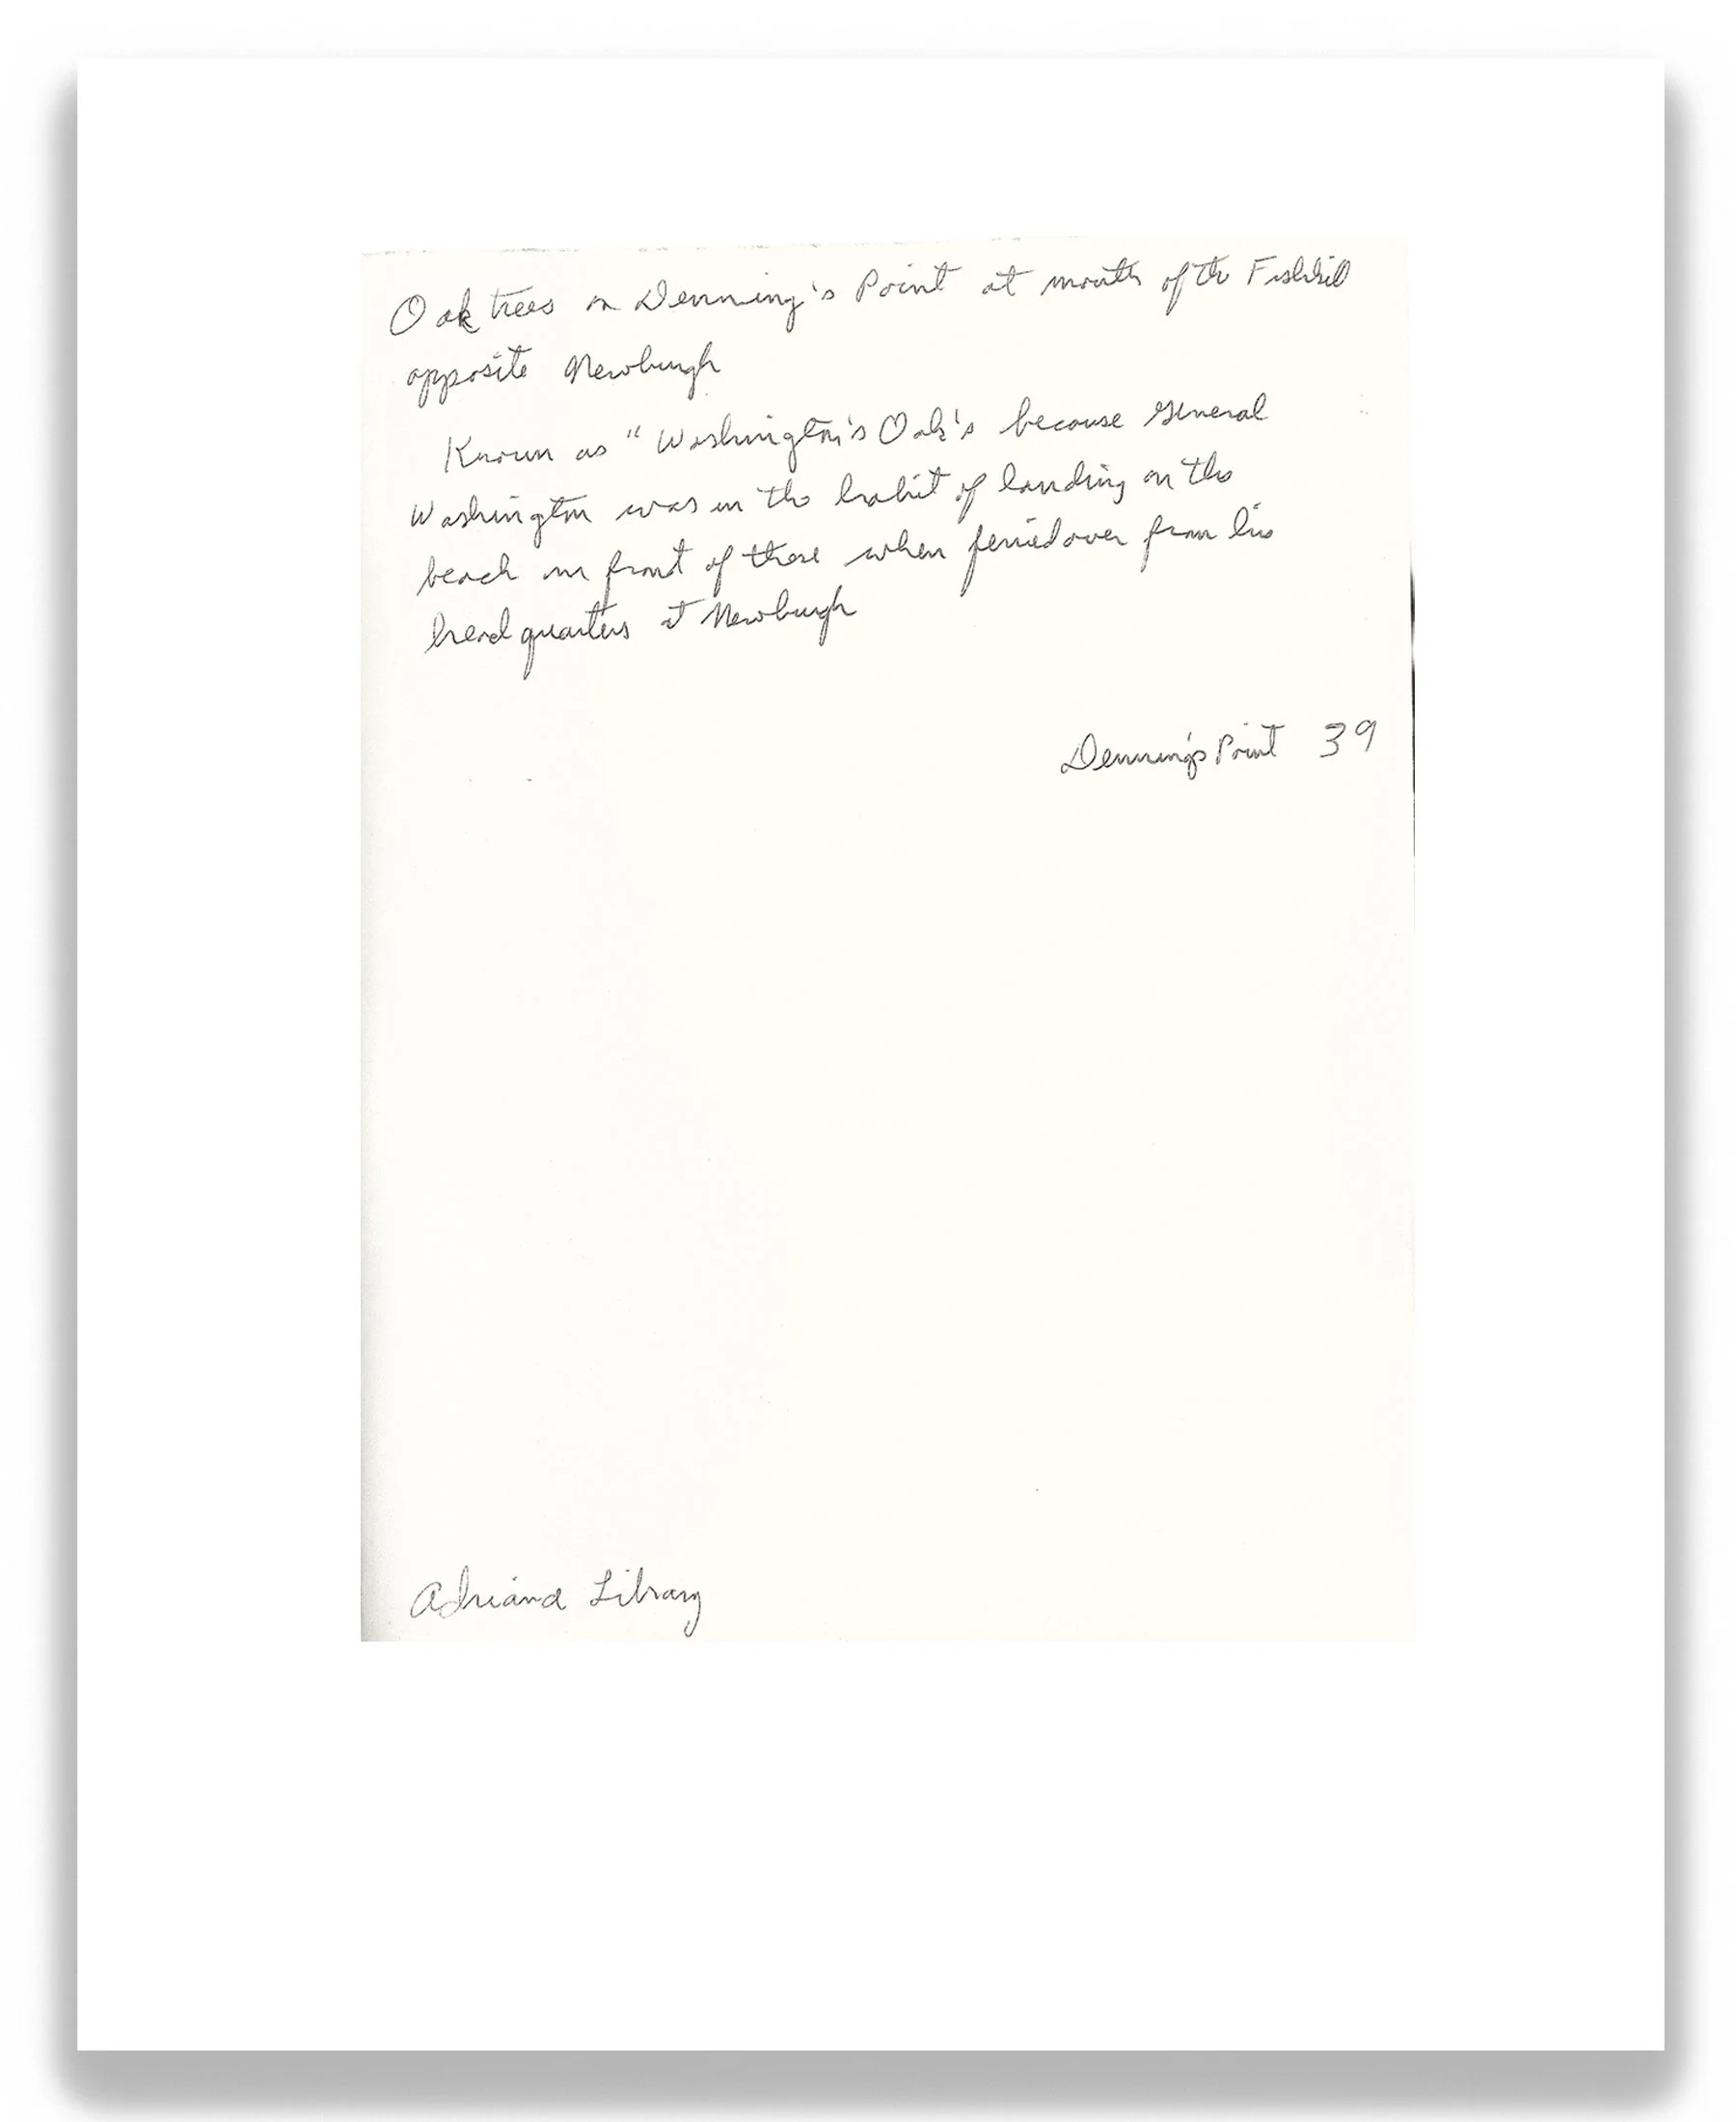 Oak trees on Denning's Point at mouth of the Fishkill
opposite Newburgh
Known as "Washington's Oak's because General
Washington was in the habit of landing on the
beach in front of these when ferried over from his
headquarters at Newburgh
Denning's Point 39
Adriance Library